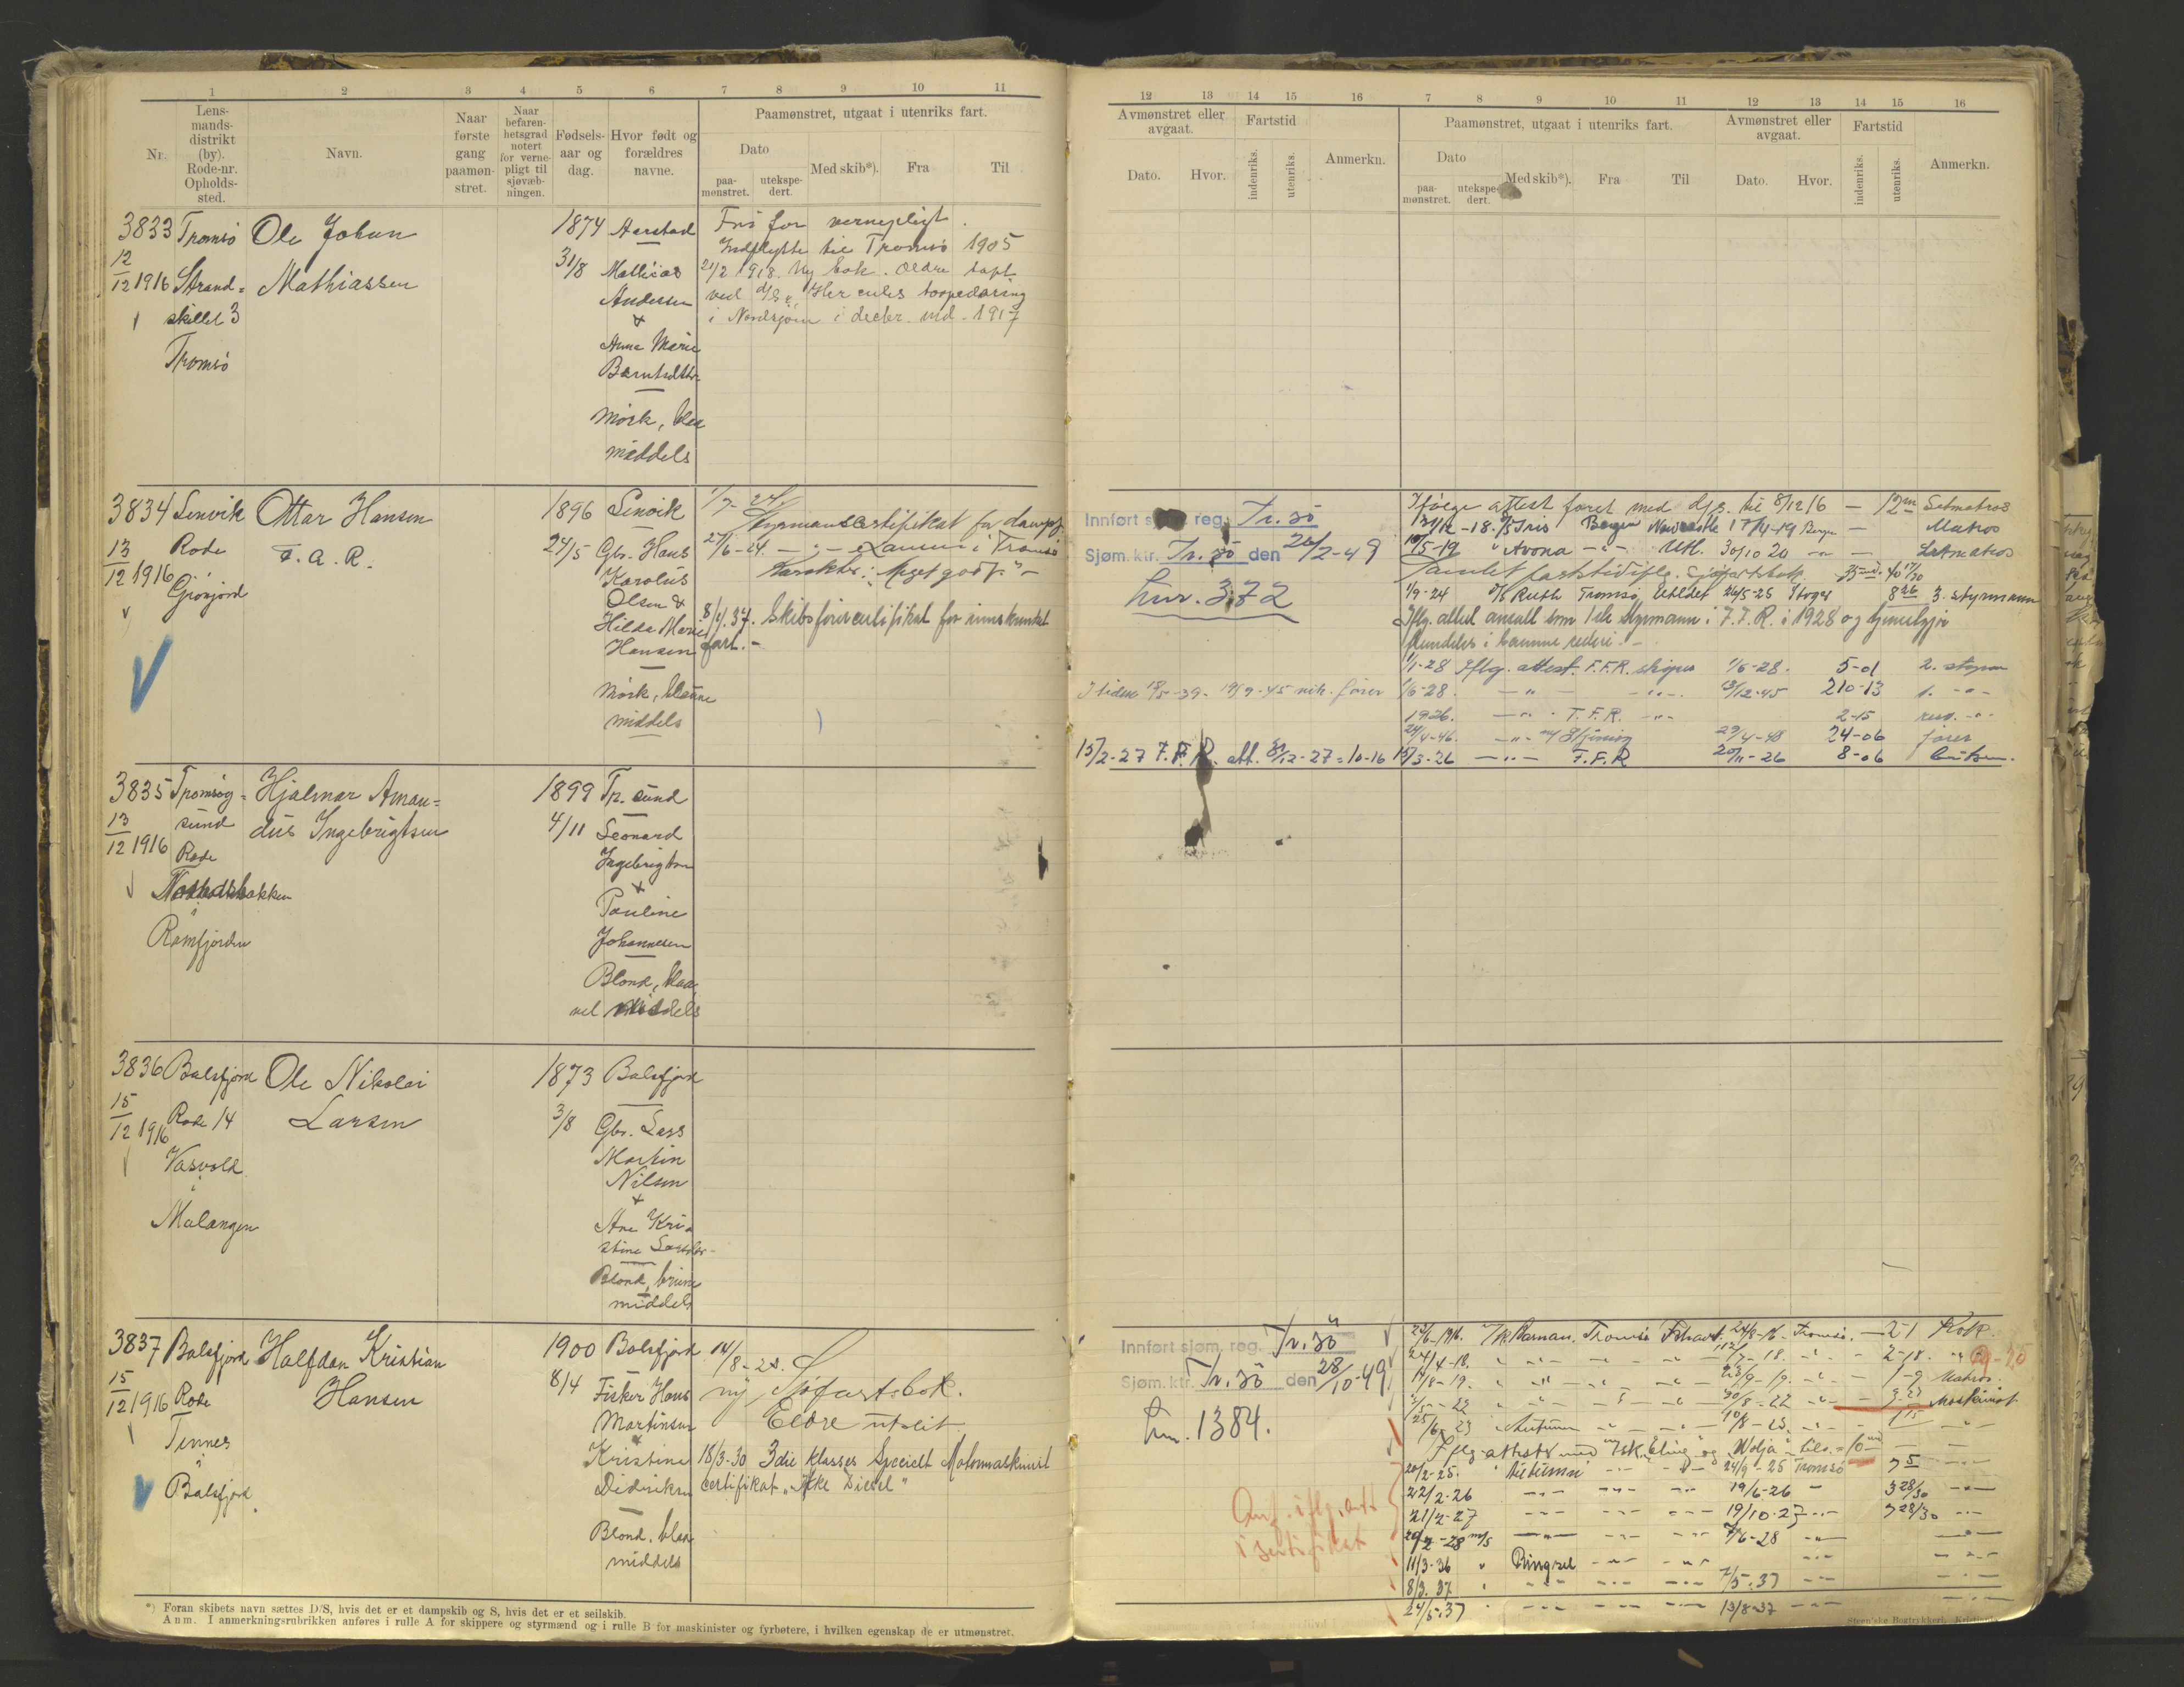 1 2 3 4 5 6 7 8 9 10 11
Nr. Lens-mands-distrikt (by). Rode-nr. Opholds-sted. Navn. Naar første gang paamøn-stret. Naar befaren-hetsgrad notert for verne-pligt til sjøvæb-ningen. Fødsels-aar og dag. Hvor født og forældres navne. Paamønstret, utgaat i utenriks fart.
Dato Med skib*). Fra Til
paa-mønstret. utekspe-dert.
3833 Tromsö Ole Johan 1874 Aarstad Fri for vernepligt.
12/12 1916 Strand= Mathiassen 31/8 Mathias Indflytte til Tromsö 1905
skillet 3 Andersen 21/2 1918. Ny bok. Ældre tapt
Tromsö & ved d/s "Hercules torpedering
Anna Marie i Nordsjöen i decbr. md. 1917
Berntsdtr.
Mörk, blaa
middels
3834 Lenvik Ottar Hansen 1896 Lenvik 1/7-24
13/12 1916 Rode F. A. R. 24/5 Gbr. Hans Styrmandscertifikat for dampsk.
Gjövjord Karolus 27/6-24. — " — Examen i Tromsö
Olsen & Karakter: "Meget godt" —
Hilda Marie 8/4.37. Skibsförercertifikat for innskrenket
Hansen fart. —
Mörk, blaune
middels
3835 Tromsöy= Hjalmar Aman= 1899 Tr. sund
13/12 1916 sund dus Ingebrigtsen 4/11 Leonard
Rode Ingebrigtsen
&
i Pauline
Ramfjorden Johannesen
Blond, blaa,
vel middels
3836 Balsfjord Ole Nikolai 1873 Balsfjord
15/12 1916 Rode 14 Larsen 3/8 Gbr. Lars
Vasvold Martin
i Nilsen
Malangen &
Ane Kri=
stine Larsdtr.
Blond, brune
middels
3837 Balsfjord Halfdan Kristian 1900 Balsfjord 14/8-28.
15/12 1916 Rode Hansen 8/4 Fisker Hans ny Sjöfartsbok.
Tennes Martinsen Eldre utslit
i Kristine 18/3-30 3die Klasses Specielt Motormaskinist
Balsfjord Didriksen certifikat "Ikke Diesel"
Blond, blaa
middels
*) Foran skibets navn sættes D/S, hvis det er et dampskib og S, hvis det er et seilskib.
Anm. I anmerkningsrubrikken anføres i rulle A for skippere og styrmænd og i rulle B for maskinister og fyrbøtere, i hvilken egenskap de er utmønstret.
12 13 14 15 16 7 8 9 10 11 12 13 14 15 16
Avmønstret eller avgaat. Fartstid Anmerkn. Paamønstret, utgaat i utenriks fart. Avmønstret eller avgaat. Fartstid Anmerkn.
Dato. Hvor. indenriks. utenriks. Dato Med skib*). Fra Til Dato. Hvor. indenriks. utenriks.
paa-mønstret. utekspe-dert.
Innført sjøm. reg. Tr. sö
Sjøm. ktr. Tr. sö den 26/2-49
Lnr. 372
Ifølge attest faret med d/s. til 8/12 16 — 12 m Letmatros
31/12-18. d/s Iris Bergen Newcastle 17/4-19 Bergen — Matros
10/5-19 " Avona — " — Utl. 30/10 20 — " — Letmatros
Samlet fartstid iflg. sjøfartsbok
1/9-24 Ruth Tromsö Utlldet 26/5-25 8 26 3. styrmann
Iflg. attest ansatt som 1ste Styrmann i F.F.R. i 1928 og
fremdeles i samme rederi. —
1/1-28 Iflg. attest. F.F.R. skiper 1/6-28. 5-01 2. styrm
I tiden 18/5-39 - 19/9-45 mil. fører 1/6-28. — " — — " — 13/12-45 210-13 1. — " —
1926. — " — T.F.R. — " — 2-15 res. — " —
24/4-46. — " — 29/4-48 24-06 fører
15/2-27 F.F.R. att. 31/12-27 = 10-16 15/3-26 — " — F.F.R 20/11-26 8-06
Innført sjøm. reg. Tr. sö
Sjøm. ktr. Tr. sö den 28/10-49
Lnr. 1384.
22/6-1916. Tromsö Ishavet 24/8-16 - Tromsö. — 2-1 Kok.
24/4-18. 12/7-18. 2-18.
14/8-19. 23/9-19. 1-9 Matros.
30/8-22 Maskinist
25/6 23 10/8-23. 1 15
Iflg. attest med
20/2-25. 24/9-25 Tromsö 7 5
22/2-26 19/6-26 3 28/30
21/2-27 19/10-27 7 28/30
20/2-28 m/s 7/6-28
11/3-36 " Ringsel
8/3.37 7/5.37
24/5.37 13/8-37
Anf. iflg. att.
i sertifikat
Steen'ske Bogtrykkeri, Kristiania